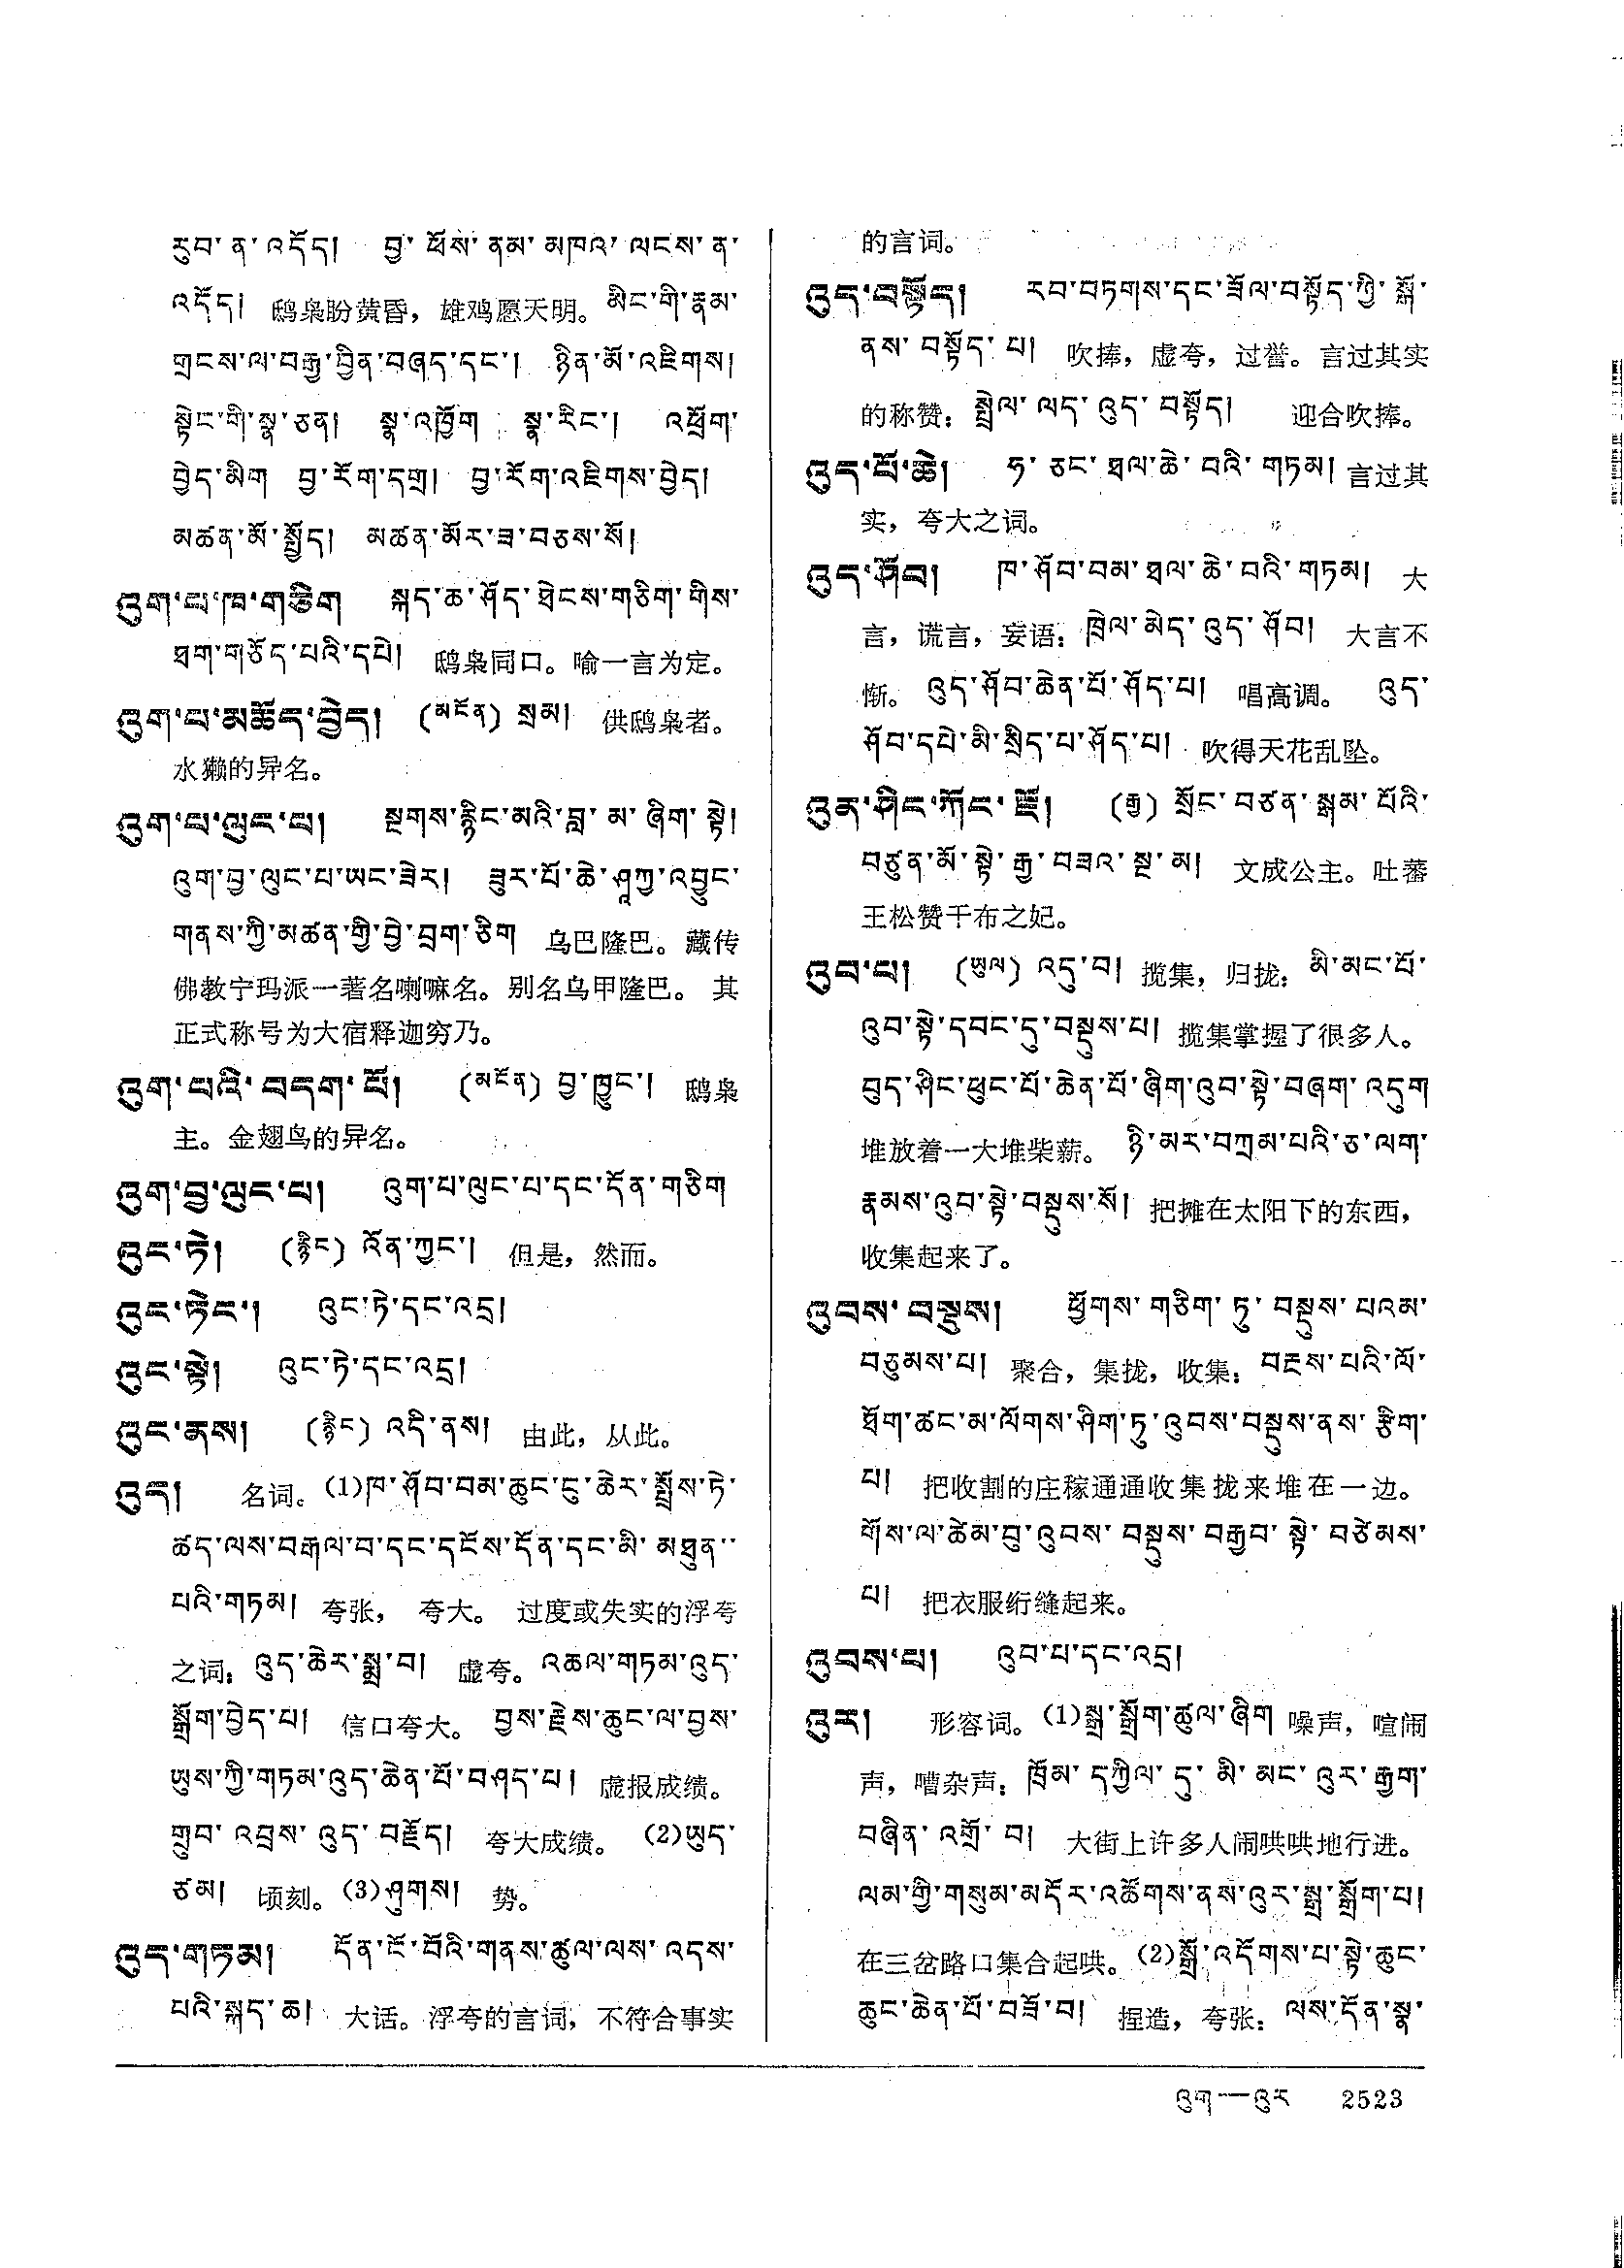 རུབ་ན་འདོད། བྱ་ཕོས་ནམ་མཁའ་ལངས་ན་
འདོད། 鸱枭盼黄昏，雄鸡愿天明。མིང་གི་རྣམ་
གྲངས་ལ་བརྒྱ་བྱིན་བཞད་དང་། ཉིན་མོ་འཇིགས།
སྟེང་གི་སྣ་ཅན། སྣ་འཁྱོག སྣ་རིང་། འཕྲོག་
བྱེད་མིག བྱ་རོག་དགྲ། བྱ་རོག་འཇིགས་བྱེད།
མཚན་མོ་སྤྱོད། མཚན་མོར་ཟ་བཅས་སོ།
འུག་པ་ཁ་གཅིག སྐད་ཆ་ཤོད་ཐེངས་གཅིག་གིས་
ཐག་གཅོད་པའི་དཔེ། 鸱枭同口。喻一言为定。
འུག་པ་མཆོད་བྱེད། (མངོན) སྲམ། 供鸱枭者。
水獭的异名。
འུག་པ་ལུང་པ། སྔགས་རྙིང་མའི་བླ་མ་ཞིག་སྟེ།
འུག་བྱ་ལུང་པ་ཡང་ཟེར། ཟུར་པོ་ཆེ་ཤཱཀྱ་འབྱུང་
གནས་ཀྱི་མཚན་གྱི་བྱེ་བྲག་ཅིག 乌巴隆巴。藏传
佛教宁玛派一著名喇嘛名。别名乌甲隆巴。其
正式称号为大宿释迦穷乃。
འུག་པའི་བདག་པོ། (མངོན) བྱ་ཁྱུང་། 鸱枭
主。金翅鸟的异名。
འུག་བྱ་ལུང་པ། འུག་པ་ལུང་པ་དང་དོན་གཅིག
འུང་ཏེ། (རྙིང) འོན་ཀྱང་། 但是，然而。
འུང་ཏེང་། འུང་ཏེ་དང་འདྲ།
འུང་སྟེ། འུང་ཏེ་དང་འདྲ།
འུང་ནས། (རྙིང) འདི་ནས། 由此，从此。
འུད། 名词。(1)ཁ་ཤོབ་བམ་ཆུང་ངུ་ཆེར་སྤྲོས་ཏེ་
ཚད་ལས་བརྒལ་བ་དང་དངོས་དོན་དང་མི་མཐུན་་
པའི་གཏམ། 夸张，夸大。过度或失实的浮夸
之词：འུད་ཆེར་སྨྲ་བ། 虚夸。འཆལ་གཏམ་འུད་
སྒྲོག་བྱེད་པ། 信口夸大。བྱས་རྗེས་ཆུང་ལ་བྱས་
ཡུས་ཀྱི་གཏམ་འུད་ཆེན་པོ་བཤད་པ། 虚报成绩。
གྲུབ་འབྲས་འུད་བརྗོད། 夸大成绩。(2)ཡུད་
ཙམ། 顷刻。(3)ཤུགས། 势。
འུད་གཏམ། དོན་ངོ་བོའི་གནས་ཚུལ་ལས་འདས་
པའི་སྐད་ཆ། 大话。浮夸的言词，不符合事实
的言词。
འུད་བསྟོད། རབ་བཏགས་དང་ཟོལ་བསྟོད་ཀྱི་སྒོ་
ནས་བསྟོད་པ། 吹捧，虚夸，过誉。言过其实
的称赞：སྤྲེལ་ལད་འུད་བསྟོད། 迎合吹捧。
འུད་པོ་ཆེ། ཧ་ཅང་ཐལ་ཆེ་བའི་གཏམ། 言过其
实，夸大之词。
འུད་ཤོབ། ཁ་ཤོབ་བམ་ཐལ་ཆེ་བའི་གཏམ། 大
言，谎言，妄语：ཁྲེལ་མེད་འུད་ཤོབ། 大言不
惭。འུད་ཤོབ་ཆེན་པོ་ཤོད་པ། 唱高调。འུད་
ཤོབ་དཔེ་མི་སྲིད་པ་ཤོད་པ། 吹得天花乱坠。
འུན་ཤིང་ཀོང་ཇོ། (རྒྱ) སྲོང་བཙན་སྒམ་པོའི་
བཙུན་མོ་སྟེ་རྒྱ་བཟའ་སྔ་མ། 文成公主。吐蕃
王松赞干布之妃。
འུབ་པ། (ཡུལ) འདུ་བ། 揽集，归拢：མི་མང་པོ་
འུབ་སྟེ་དབང་དུ་བསྡུས་པ། 揽集掌握了很多人。
བུད་ཤིང་ཕུང་པོ་ཆེན་པོ་ཞིག་འུབ་སྟེ་བཞག་འདུག
堆放着一大堆柴薪。ཉི་མར་བཀྲམ་པའི་ཅ་ལག་
རྣམས་འུབ་སྟེ་བསྡུས་སོ། 把摊在太阳下的东西，
收集起来了。
འུབས་བསྡུས། ཕྱོགས་གཅིག་ཏུ་བསྡུས་པའམ་
བཅུམས་པ། 聚合，集拢，收集：བརྔས་པའི་ལོ་
ཐོག་ཚང་མ་ལོགས་ཤིག་ཏུ་འུབས་བསྡུས་ནས་རྩིག་
པ། 把收割的庄稼通通收集拢来堆在一边。
གོས་ལ་ཚེམ་བུ་འུབས་བསྡུས་བརྒྱབ་སྟེ་བཙེམས་
པ། 把衣服绗缝起来。
འུབས་པ། འུབ་པ་དང་འདྲ།
འུར། 形容词。(1)སྒྲ་སྒྲོག་ཚུལ་ཞིག 噪声，喧闹
声，嘈杂声：ཁྲོམ་དཀྱིལ་དུ་མི་མང་འུར་རྒྱག་
བཞིན་འགྲོ་བ། 大街上许多人闹哄哄地行进。
ལམ་གྱི་གསུམ་མདོར་འཚོགས་ནས་འུར་སྒྲ་སྒྲོག་པ།
在三岔路口集合起哄。(2)སྒྲོ་འདོགས་པ་སྟེ་ཆུང་
ཆུང་ཆེན་པོ་བཟོ་བ། 捏造，夸张：ལས་དོན་སྣ་
འུག——འུར 2523